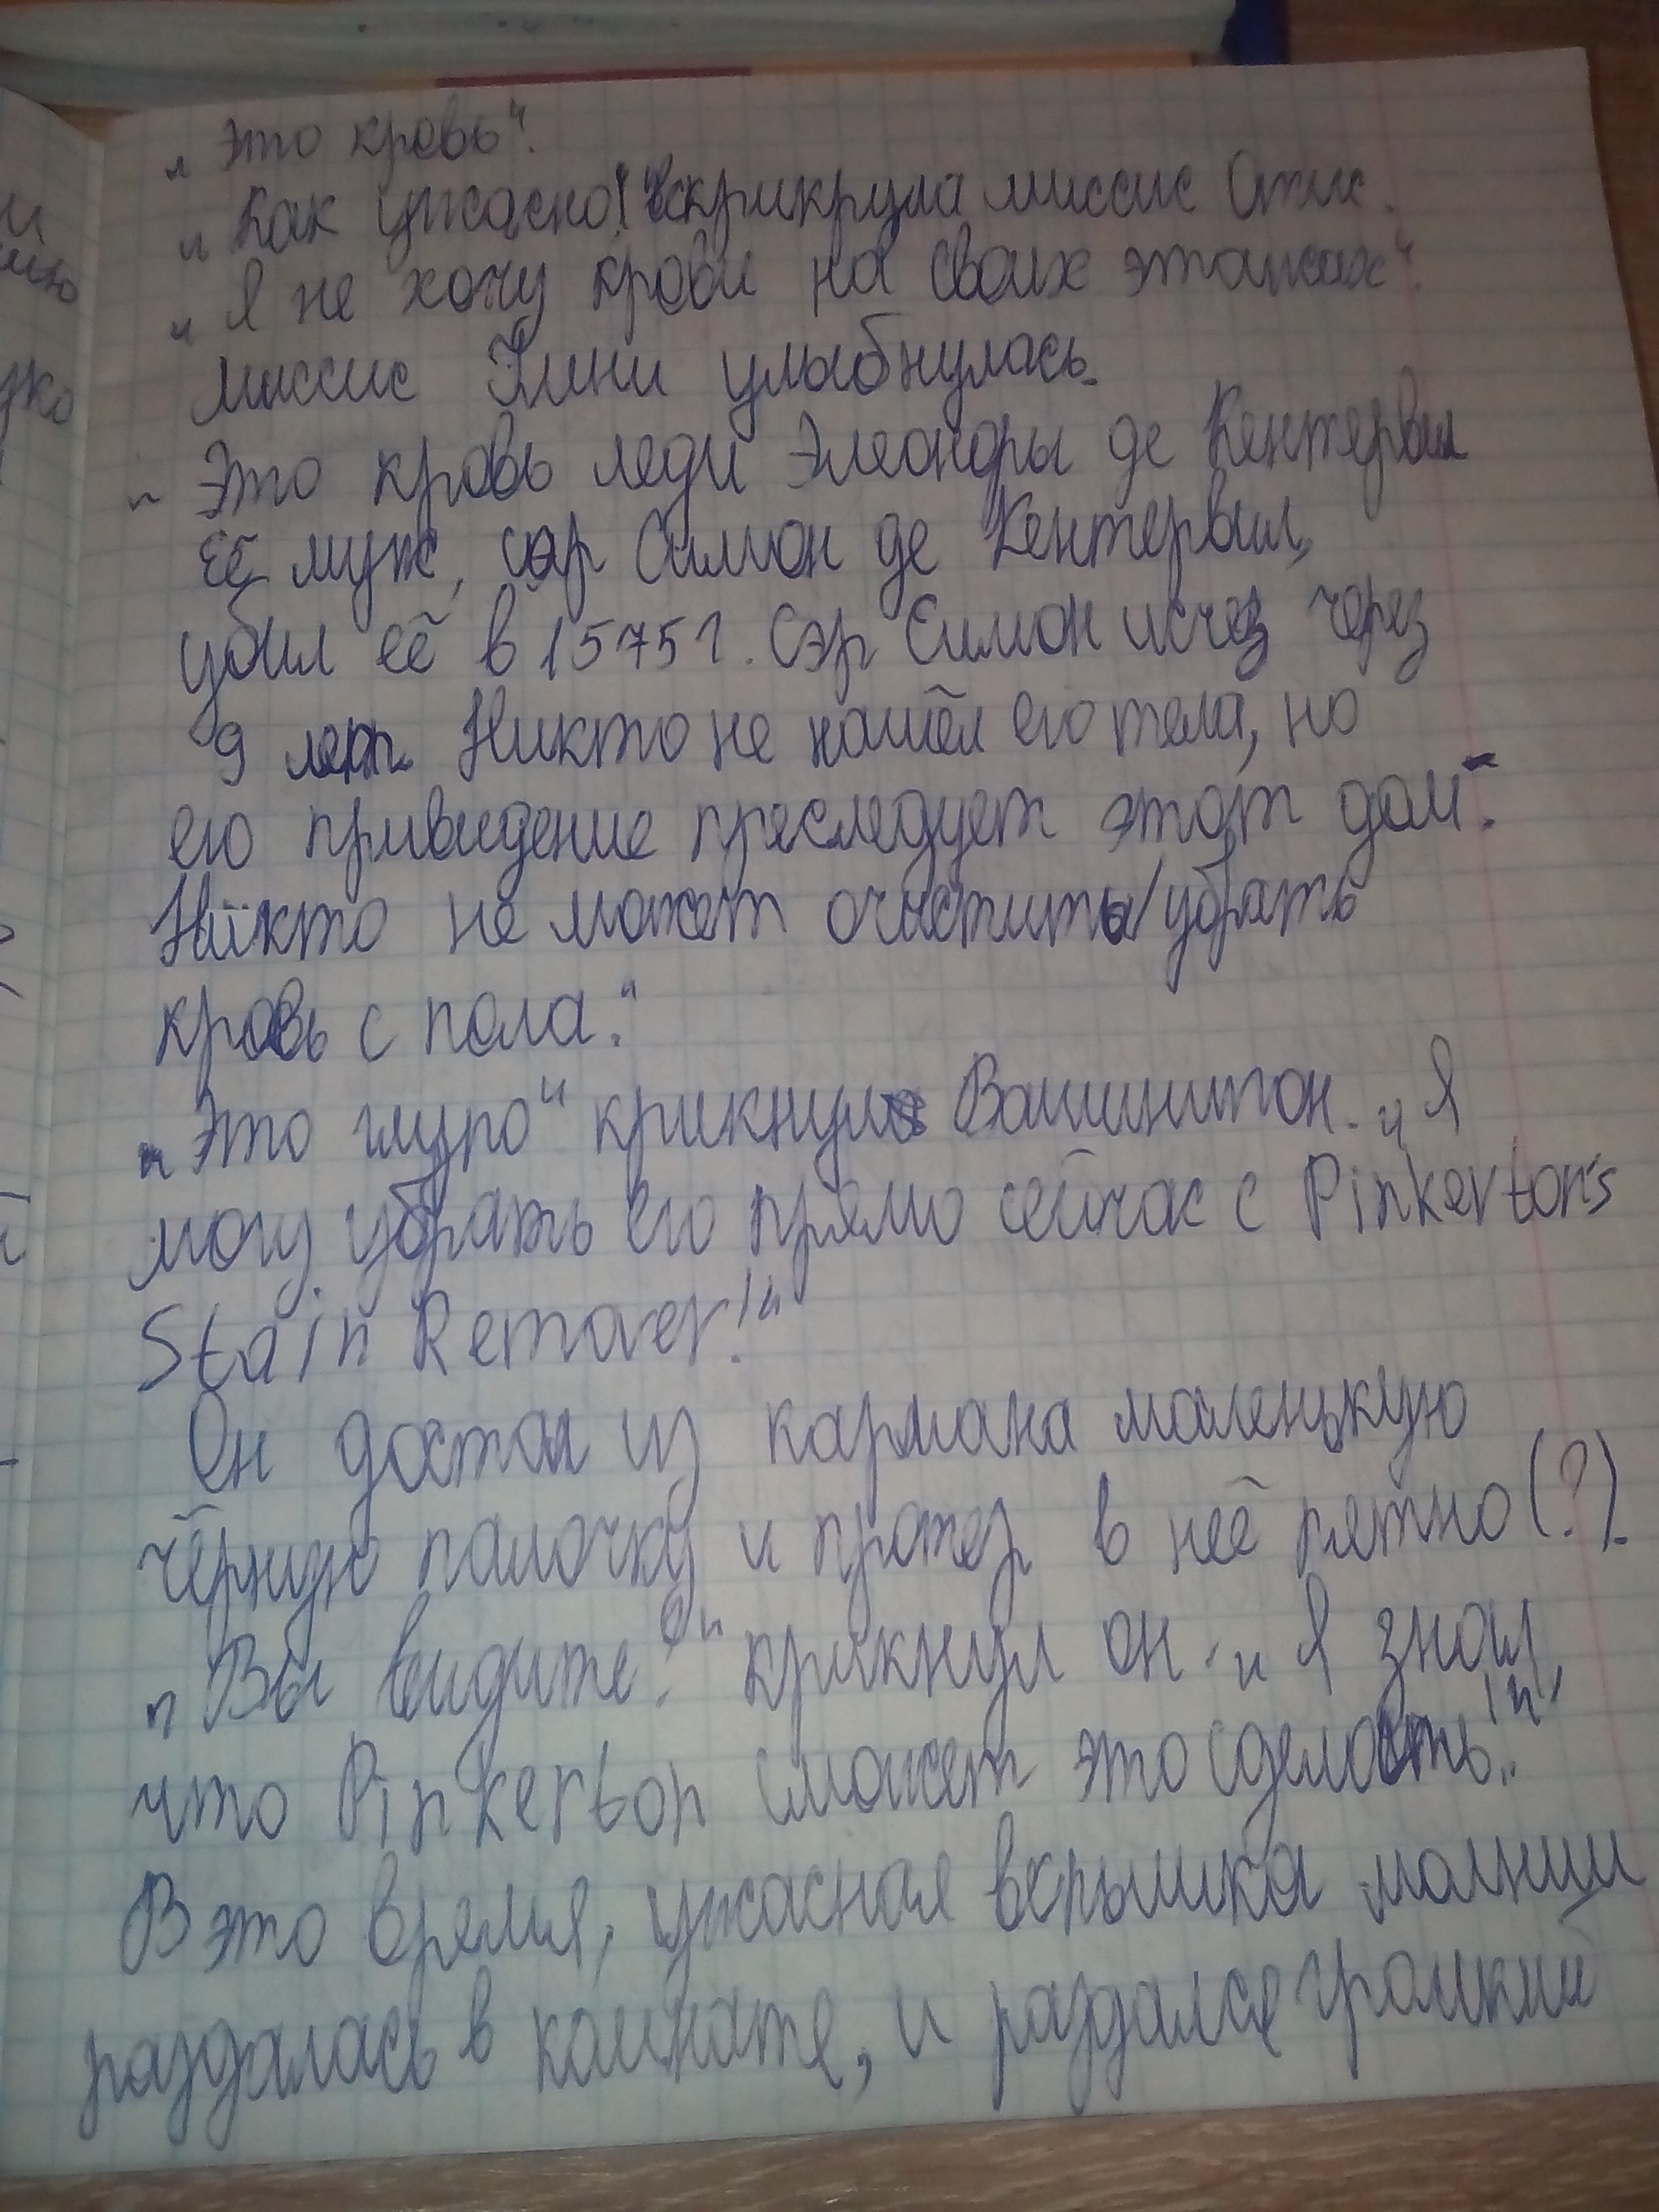 „Это кровь".
„Как ужасно!" Вскрикрула миссис Отис.
„Я не хочу крови на своих этажах".
Миссис Юмни улыбнулась.
„Это кровь леди Элеоноры де Кентервил
Её муж, сэр Симон де Кентервил,
убил её в 1575 г. Сэр Симон исчез через
9 лет. Никто не нашёл его тела, но
его привидение преследует этот дом".
Никто не может очистить/убрать
кровь с пола."
„Это глупо" крикнул Вашингтон. „Я
могу убрать его прямо сейчас с Pinkerton's
Stain Remover!"
Он достал из кармана маленькую
чёрную палочку и протёр в неё пятно (?).
„Вы видите?" крикнул он. „Я знал,
что Pinkerton сможет это сделать!".
В это время, ужасная вспышка молнии
раздалась в комнате, и раздался громкий